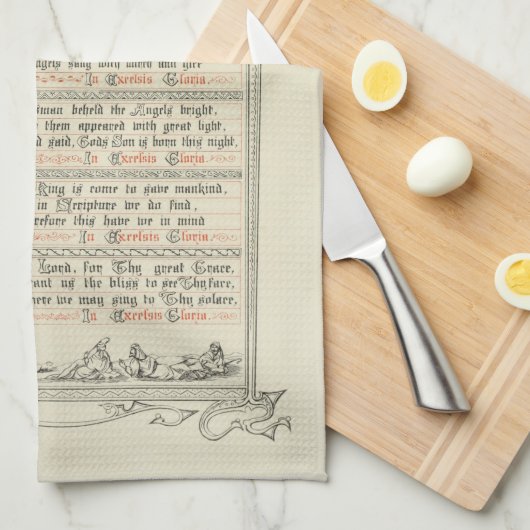 ngels sang with mirth and glee
In Excelsis Gloria.
dsman beheld the Angels bright,
them appeared with great light,
d said, Gods Son is born this night,
In Excelsis Gloria.
King is come to save mankind,
in Scripture we do find,
erefore this have we in mind
In Excelsis Gloria.
Lord, for Thy great Grace,
ant us the bliss to see Thy face,
here we may sing to Thy solace,
In Excelsis Gloria.